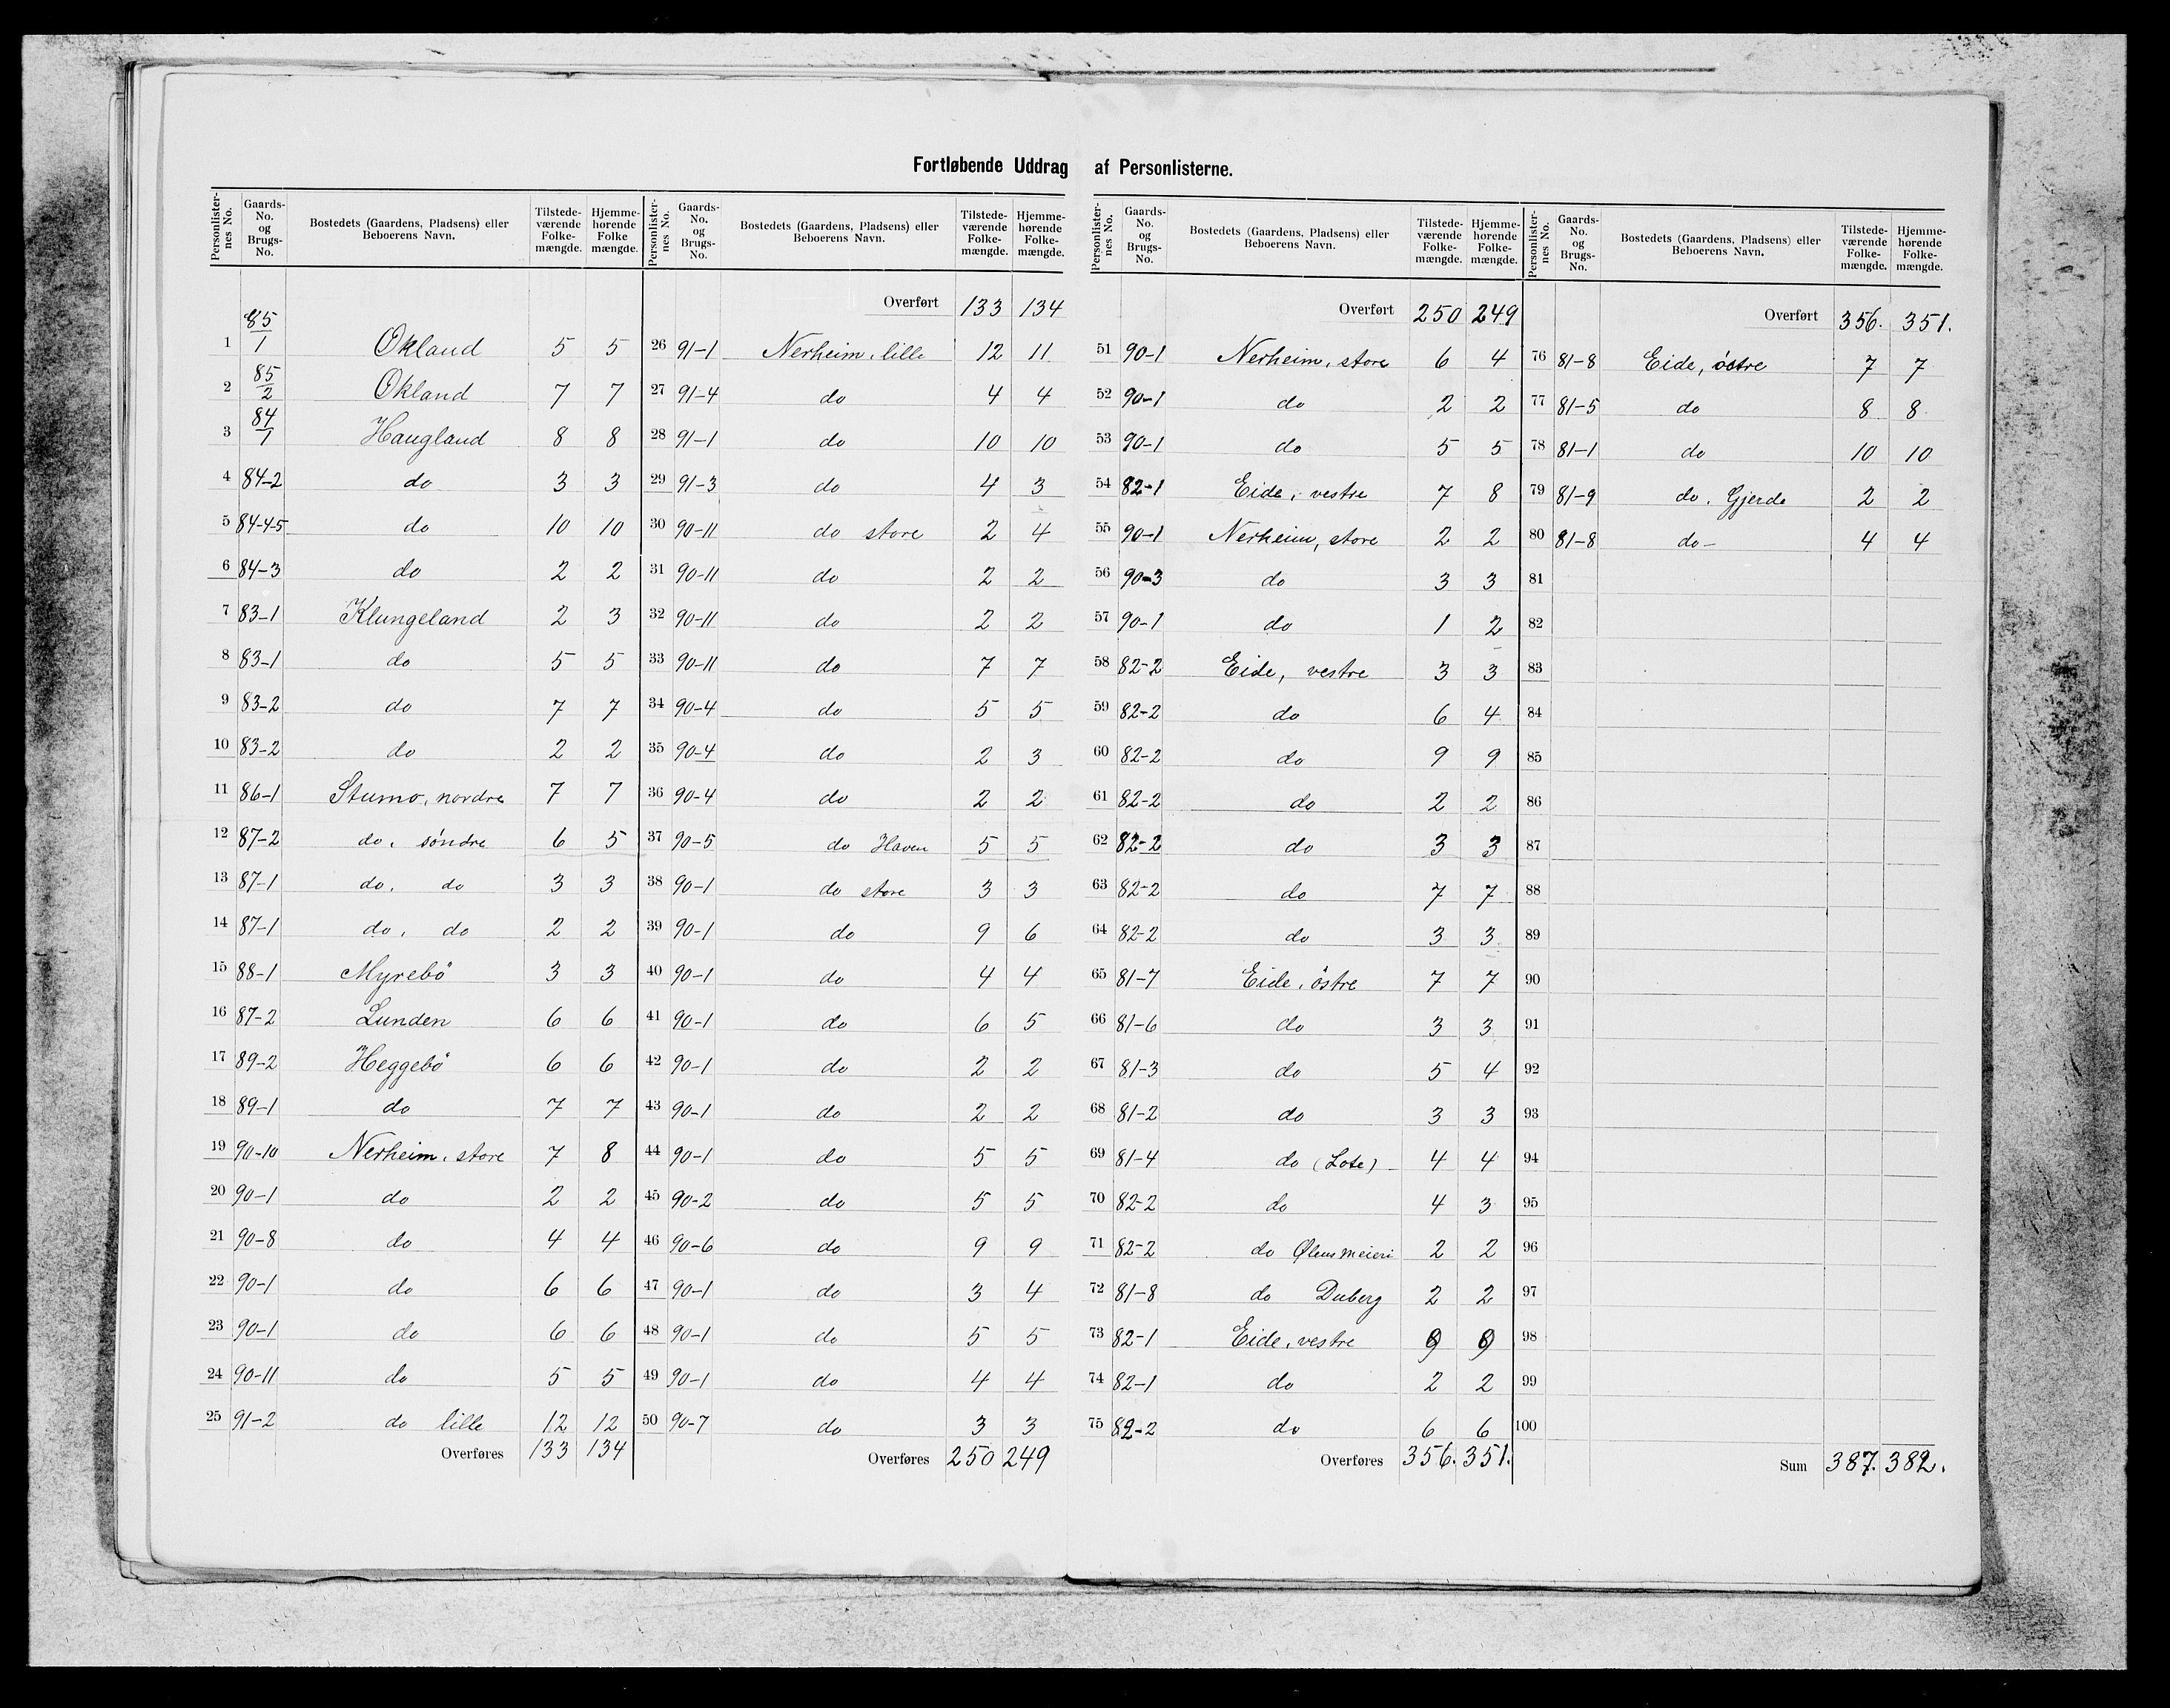 Fortløbende Uddrag af Personlisterne.
Personlisternes No. Gaards-No. og Brugs-No. Bostedets (Gaardens, Pladsens) eller Beboerens Navn. Tilstedeværende Folkemængde. Hjemmehørende Folkemængde.
1 85/1 Okland 5 5
2 85/2 Okland 7 7
3 84/1 Haugland 8 8
4 84-2 do 3 3
5 84-4-5 do 10 10
6 84-3 do 2 2
7 83-1 Klungeland 2 3
8 83-1 do 5 5
9 83-2 do 7 7
10 83-2 do 2 2
11 86-1 Stumo, nordre 7 7
12 87-2 do, söndre 6 5
13 87-1 do, do 3 3
14 87-1 do, do 2 2
15 88-1 Myrebö 3 3
16 87-2 Lunden 6 6
17 89-2 Heggebö 6 6
18 89-1 do 7 7
19 90-10 Nerheim, store 7 8
20 90-1 do 2 2
21 90-8 do 4 4
22 90-1 do 6 6
23 90-1 do 6 6
24 90-11 do 5 5
25 91-2 do lille 12 12
Overføres 133 134
Personlisternes No. Gaards-No. og Brugs-No. Bostedets (Gaardens, Pladsens) eller Beboerens Navn. Tilstedeværende Folkemængde. Hjemmehørende Folkemængde.
Overført 133 134
26 91-1 Nerheim, lille 12 11
27 91-4 do 4 4
28 91-1 do 10 10
29 91-3 do 4 3
30 90-11 do store 2 4
31 90-11 do 2 2
32 90-11 do 2 2
33 90-11 do 7 7
34 90-4 do 5 5
35 90-4 do 2 3
36 90-4 do 2 2
37 90-5 do Haven 5 5
38 90-1 do store 3 3
39 90-1 do 9 6
40 90-1 do 4 4
41 90-1 do 6 5
42 90-1 do 2 2
43 90-1 do 2 2
44 90-1 do 5 5
45 90-2 do 5 5
46 90-6 do 9 9
47 90-1 do 3 4
48 90-1 do 5 5
49 90-1 do 4 4
50 90-7 do 3 3
Overføres 250 249
Personlisternes No. Gaards-No. og Brugs-No. Bostedets (Gaardens, Pladsens) eller Beboerens Navn. Tilstedeværende Folkemængde. Hjemmehørende Folkemængde.
Overført 250 249
51 90-1 Nerheim, store 6 4
52 90-1 do 2 2
53 90-1 do 5 5
54 82-1 Eide, vestre 7 8
55 90-1 Nerheim, store 2 2
56 90-3 do 3 3
57 90-1 do 1 2
58 82-2 Eide, vestre 3 3
59 82-2 do 6 4
60 82-2 do 9 9
61 82-2 do 2 2
62 82-2 do 3 3
63 82-2 do 7 7
64 82-2 do 3 3
65 81-7 Eide, östre 7 7
66 81-6 do 3 3
67 81-3 do 5 4
68 81-2 do 3 3
69 81-4 do (Lote) 4 4
70 82-2 do 4 3
71 82-2 do Ølensmeieri 2 2
72 81-8 do Duberg 2 2
73 82-1 Eide, vestre 9 9
74 82-1 do 2 2
75 82-2 do 6 6
Overføres 356. 351.
Personlisternes No. Gaards-No. og Brugs-No. Bostedets (Gaardens, Pladsens) eller Beboerens Navn. Tilstedeværende Folkemængde. Hjemmehørende Folkemængde.
Overført 356. 351.
76 81-8 Eide, östre 7 7
77 81-5 do 8 8
78 81-1 do 10 10
79 81-9 do, Gjerde 2 2
80 81-8 do- 4 4
81
82
83
84
85
86
87
88
89
90
91
92
93
94
95
96
97
98
99
100
Sum 387. 382.